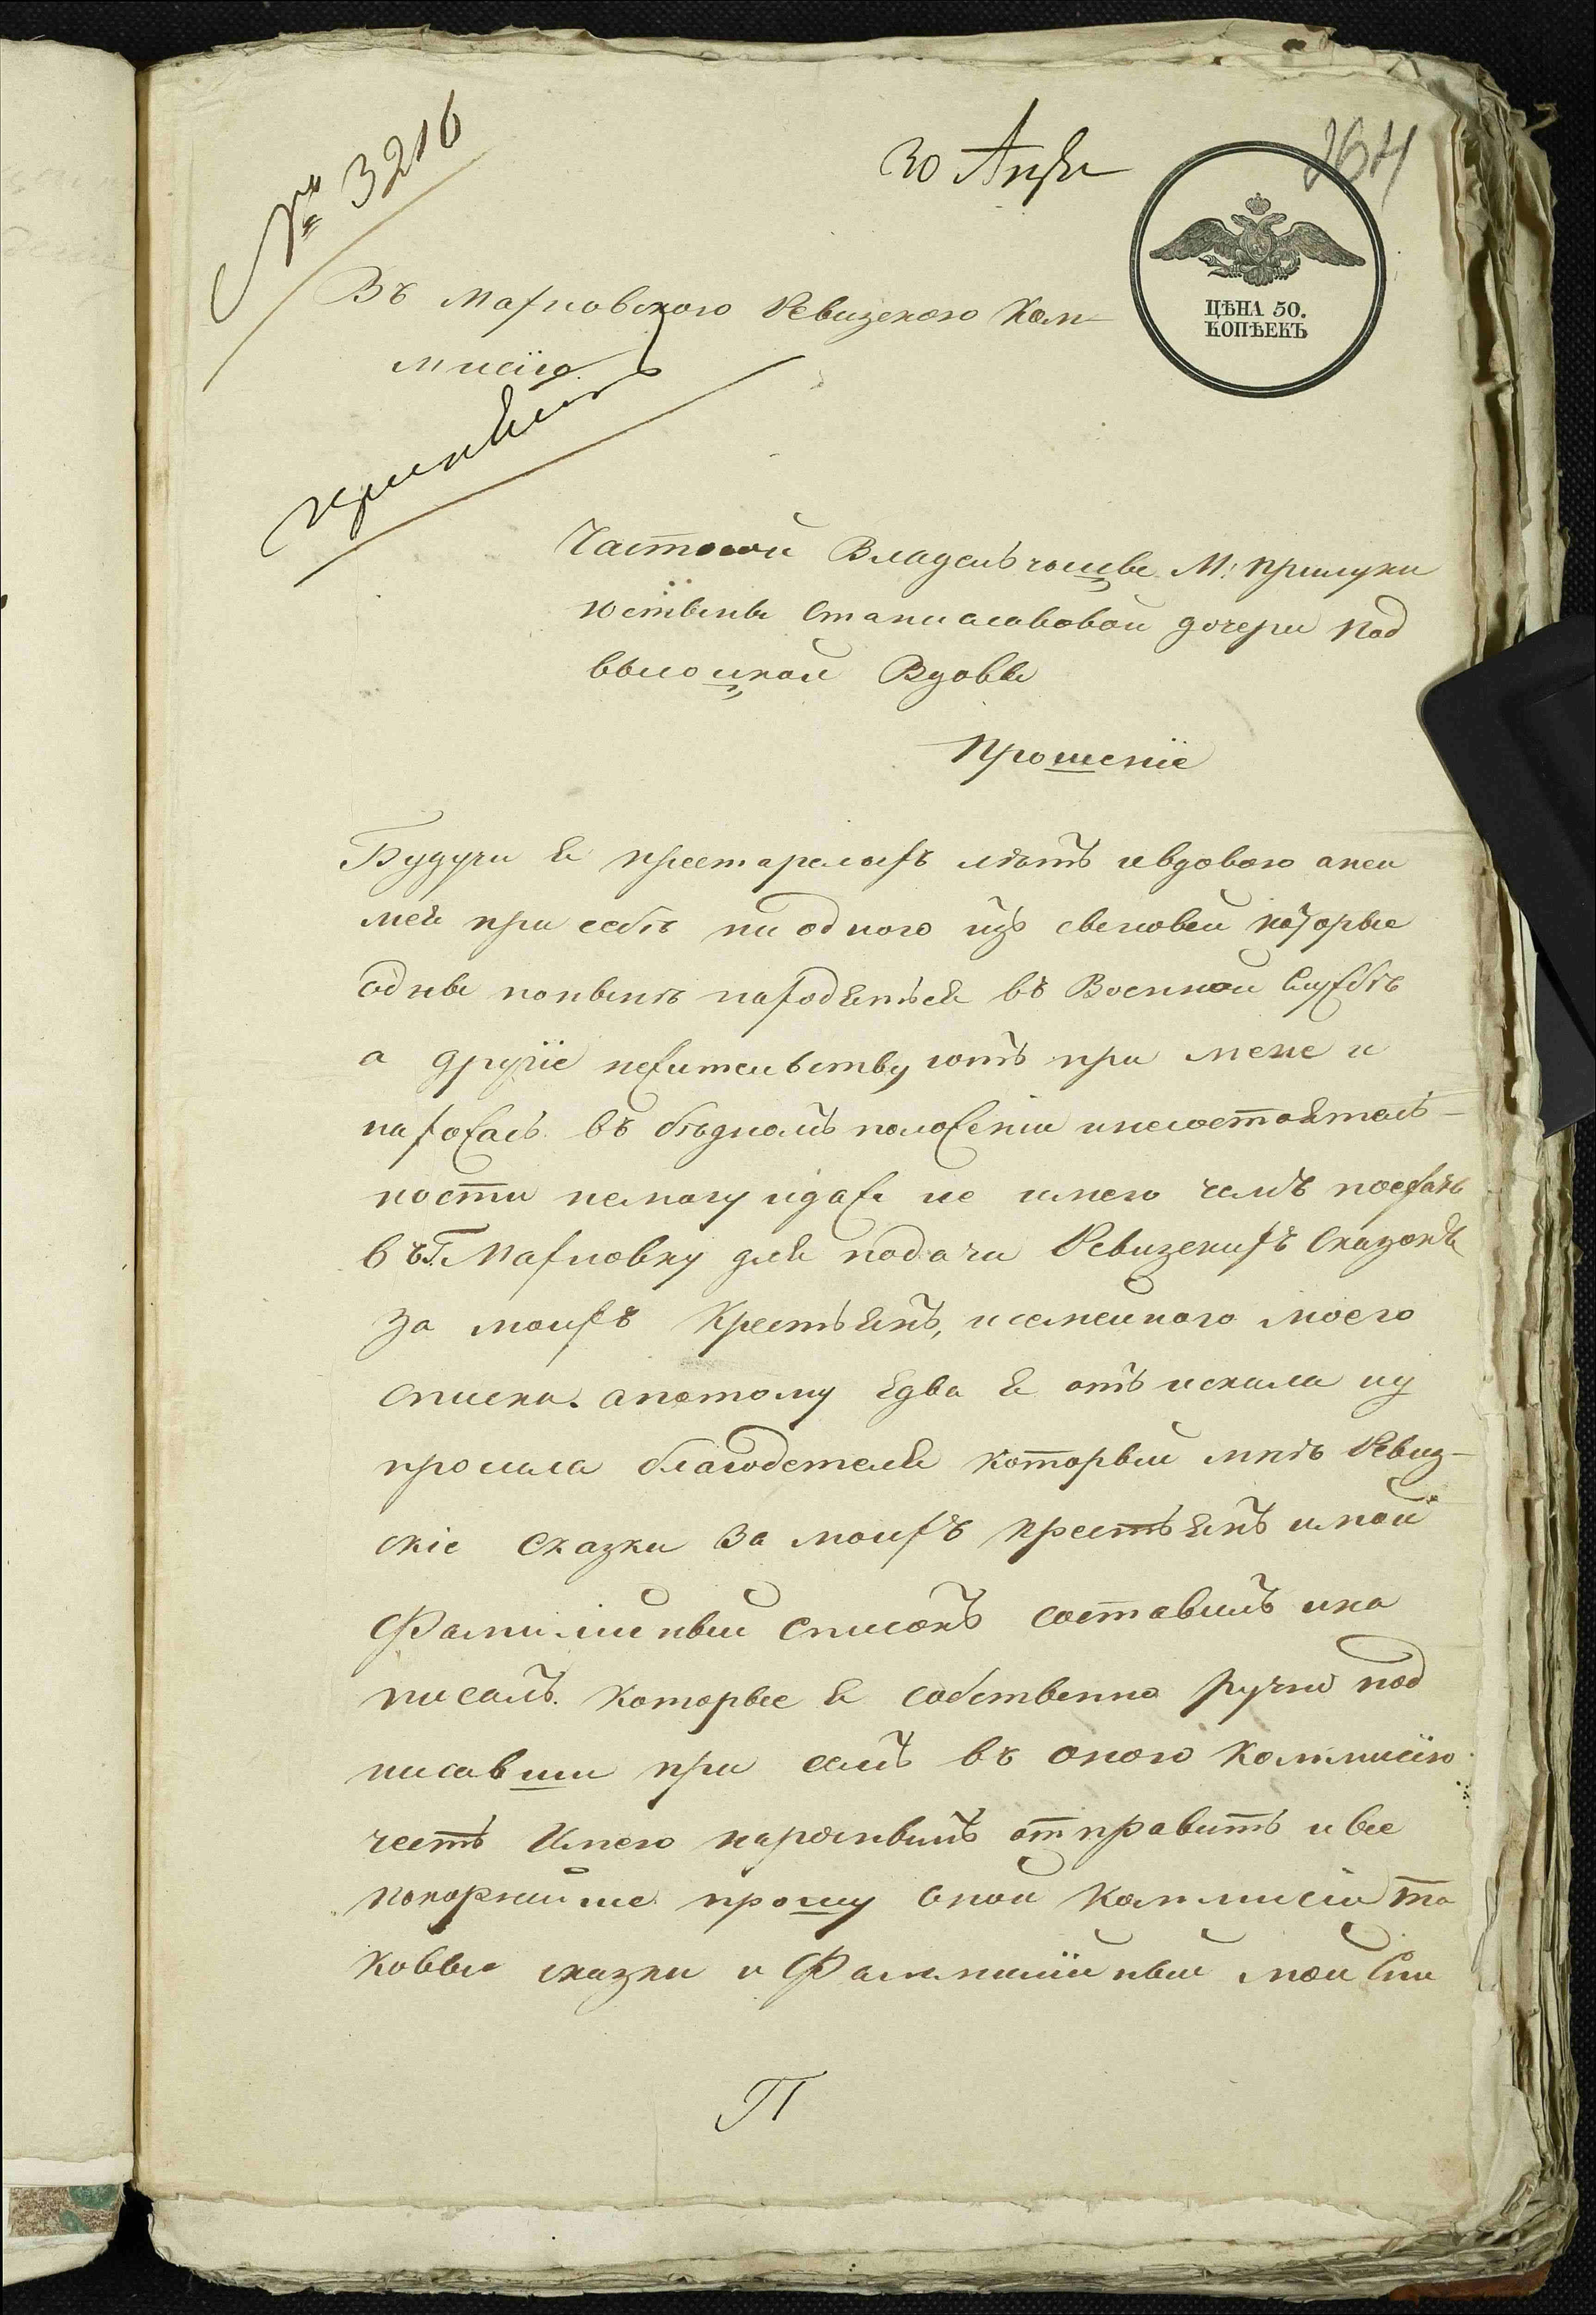 № 3216
30 Апр
264
ЦѢНА 50.
КОПѢЕКЪ
Въ Махновскою Ревизскою Ком-
мисію
Частной Владельчошвы М: Прилуки
Юстыны Станиславовой дочери Под
высоцкой Вдовы
Прошеніе
Будучи я престарелыхъ лѣтъ ивдовою анеи
мея при себѣ ни одного изъ сыновей которые
одны понынѣ находятся въ Военной Службѣ
а другіе нежительствуютъ при мене и
нахожась въ бѣдномъ положеніи инесостоятель-
ности немогу идаже не имею чемъ поехать
въ Г. Махновку для подачи Ревизскихъ Сказокъ
за моихъ Крестьянъ, исемейного моего
списка. апотому едва я отъискала иу
просила благодетеля который мнѣ Ревиз-
скіе Сказки за моихъ крестьянъ имой
Фамилийный Списокъ составилъ ина
писалъ. которые я собственно ручно под
писавши при семъ въ оною Коммисію
честь Имею нарочнымъ отправить и все
покорнейше прошу оной Коммисіи та
ковые сказки и Фамилийный мой Спи
П